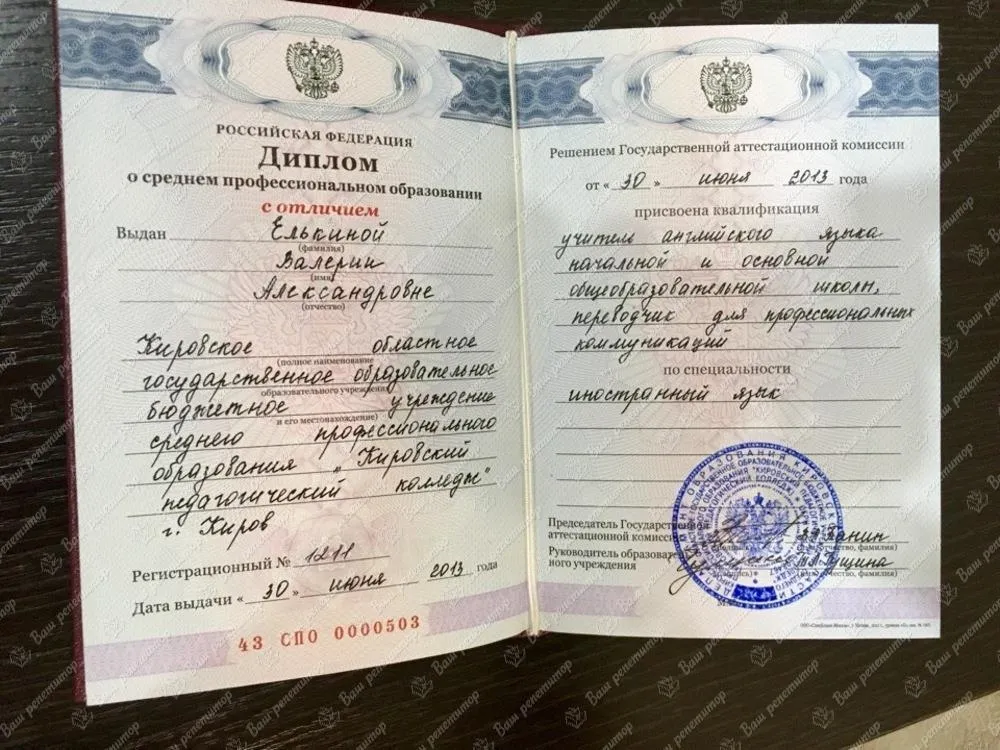 РОССИЙСКАЯ ФЕДЕРАЦИЯ
Диплом
о среднем профессиональном образовании
с отличием
Выдан Елькиной
(фамилия)
Валерии
(имя)
Александровне
(отчество)
Кировское областное
(полное наименование
государственное образовательное
образовательного учреждения
бюджетное учреждение
и его местонахождение)
среднего профессионального
образования „Кировский
педагогический колледж"
г. Киров
Регистрационный № 1211
Дата выдачи « 30 » июня 2013 года
43 СПО 0000503
Решением Государственной аттестационной комиссии
от « 30 » июня 2013 года
присвоена квалификация
учитель английского языка
начальной и основной
общеобразовательной школы,
переводчик для профессиональных
коммуникаций
по специальности
иностранный язык
Председатель Государственной
аттестационной комиссии
Руководитель образовательного
ного учреждения
Ваш репетитор